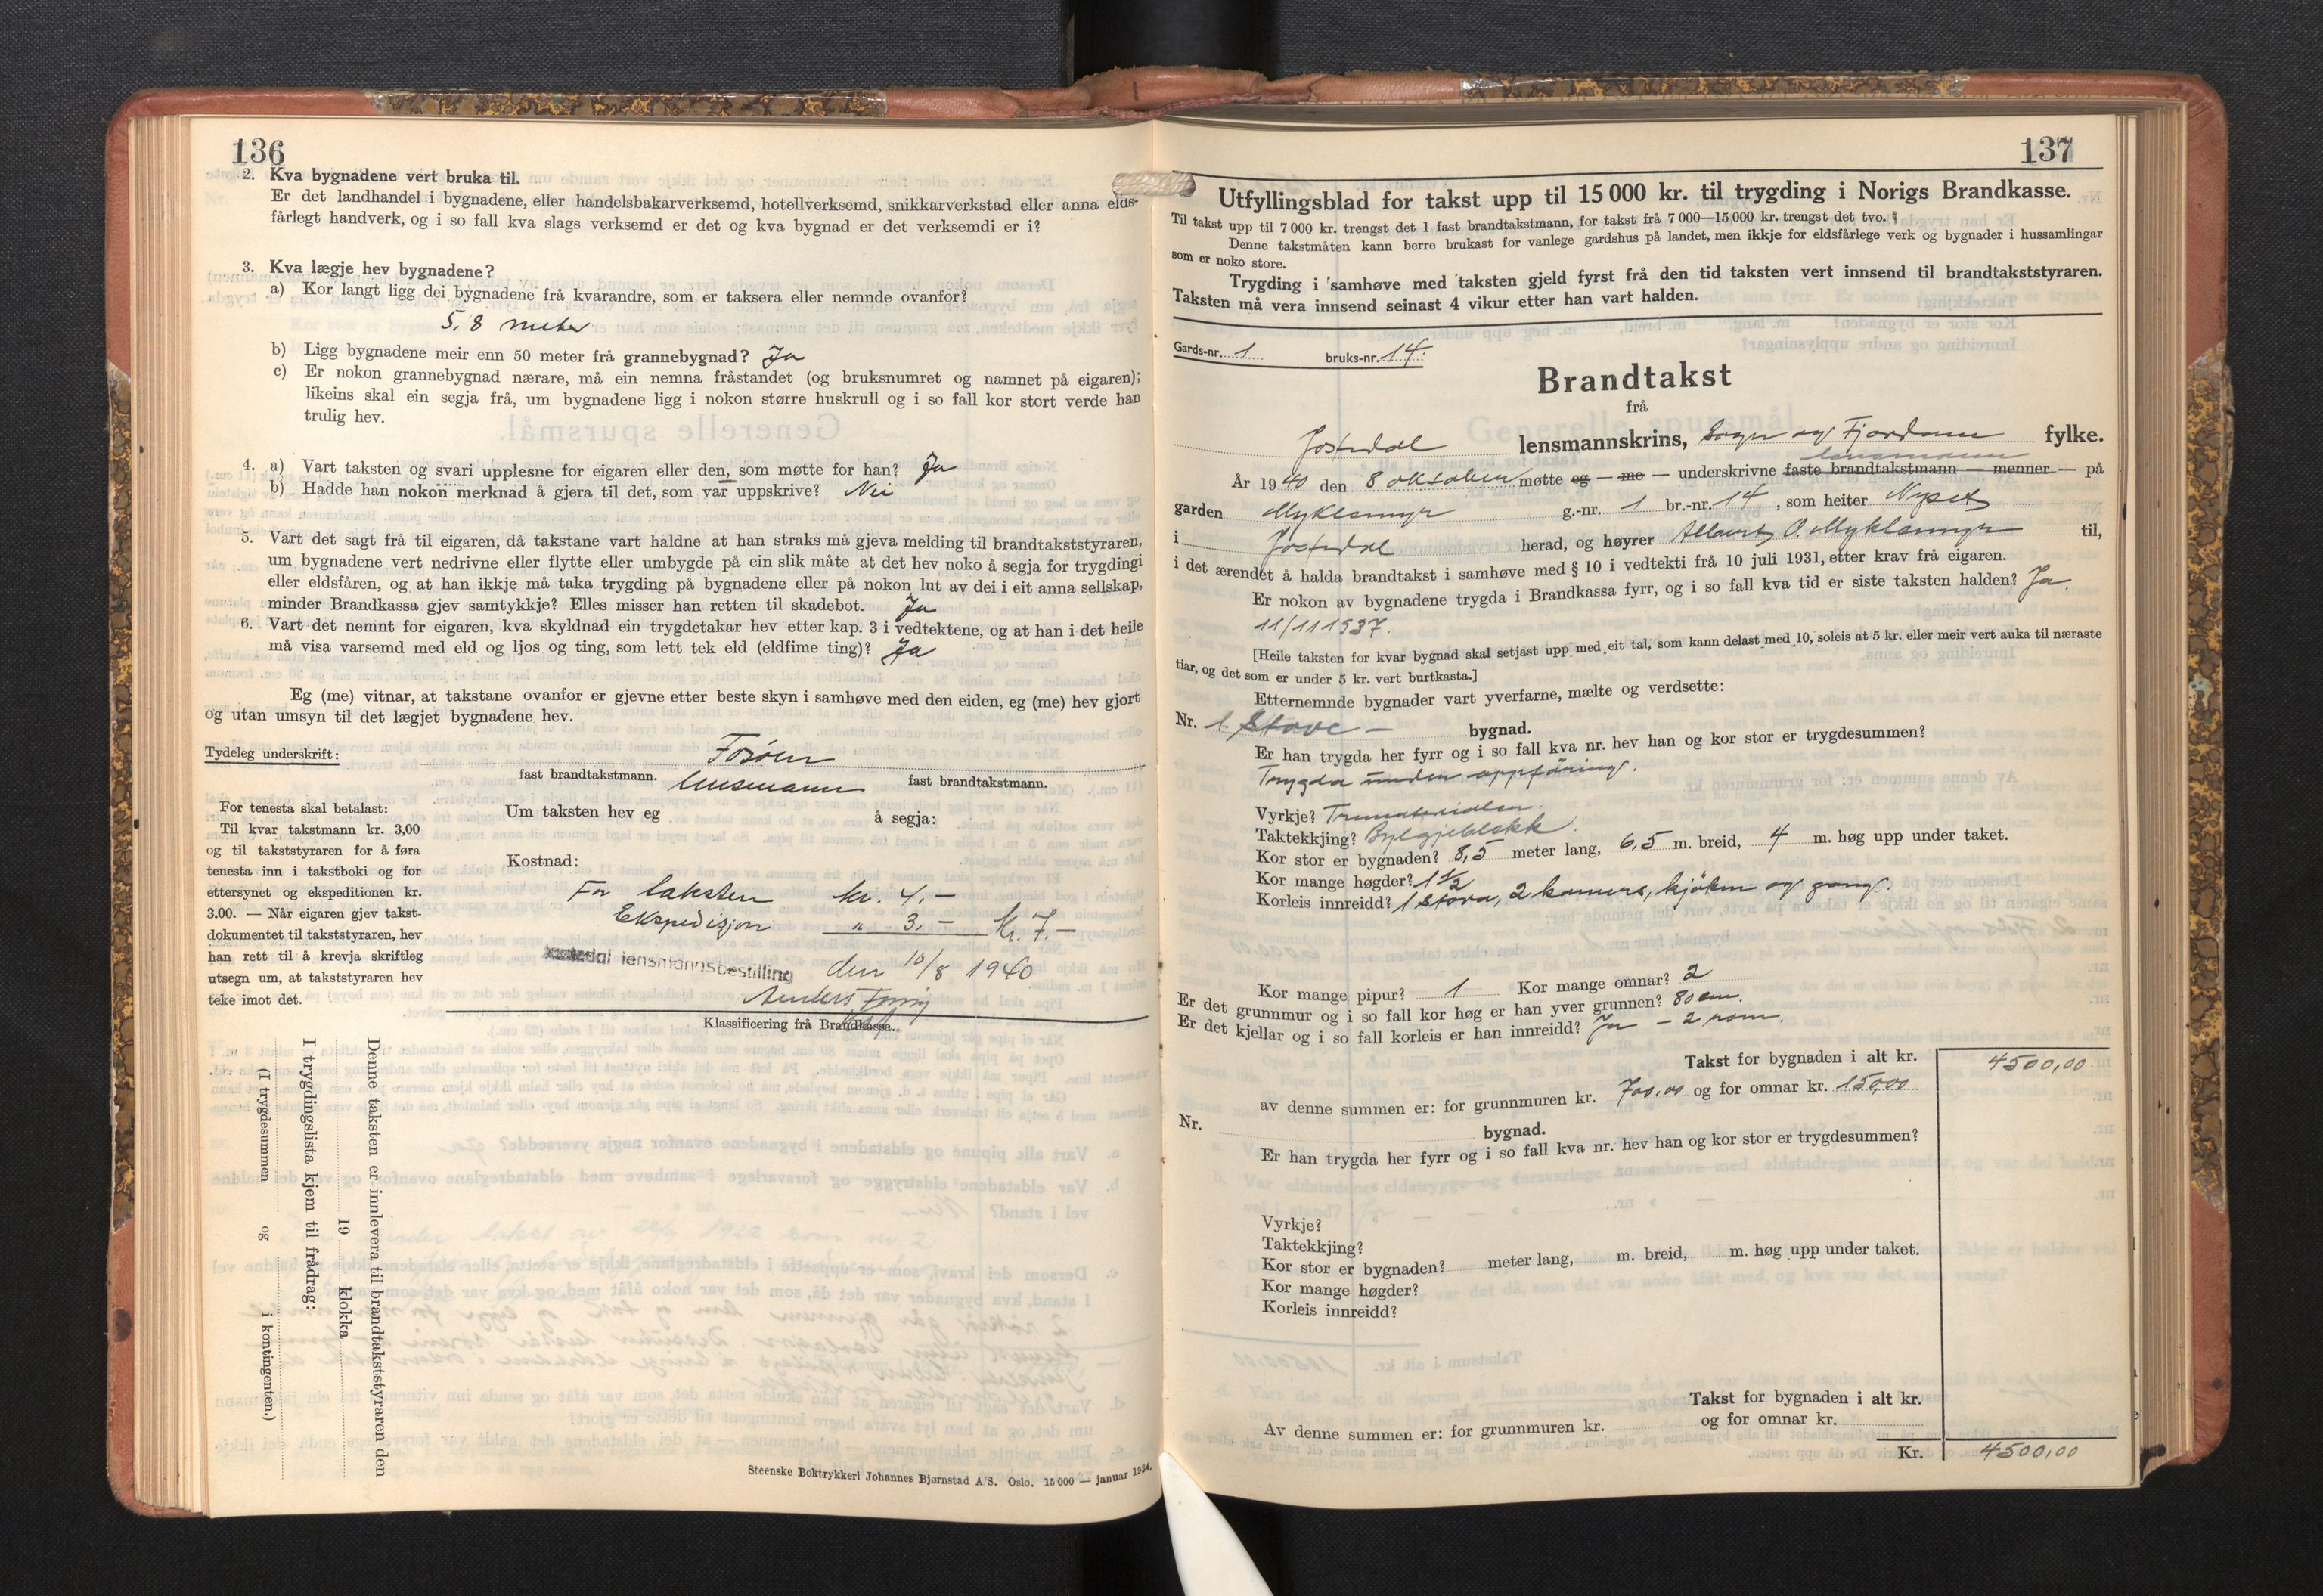 136
2. Kva bygnadene vert bruka til.
Er det landhandel i bygnadene, eller handelsbakarverksemd, hotellverksemd, snikkarverkstad eller anna elds-
fårlegt handverk, og i so fall kva slags verksemd er det og kva bygnad er det verksemdi er i?
3. Kva lægje hev bygnadene?
a) Kor langt ligg dei bygnadene frå kvarandre, som er taksera eller nemnde ovanfor?
5,8 meter
b) Ligg bygnadene meir enn 50 meter frå grannebygnad? Ja
c) Er nokon grannebygnad nærare, må ein nemna fråstandet (og bruksnumret og namnet på eigaren);
likeins skal ein segja frå, um bygnadene ligg i nokon større huskrull og i so fall kor stort verde han
trulig hev.
4. a) Vart taksten og svari upplesne for eigaren eller den, som møtte for han? Ja
b) Hadde han nokon merknad å gjera til det, som var uppskrive? Nei
5. Vart det sagt frå til eigaren, då takstane vart haldne at han straks må gjeva melding til brandtakststyraren,
um bygnadene vert nedrivne eller flytte eller umbygde på ein slik måte at det hev noko å segja for trygdingi
eller eldsfåren, og at han ikkje må taka trygding på bygnadene eller på nokon lut av dei i eit anna sellskap,
minder Brandkassa gjev samtykkje? Elles misser han retten til skadebot. Ja
6. Vart det nemnt for eigaren, kva skyldnad ein trygdetakar hev etter kap. 3 i vedtektene, og at han i det heile
må visa varsemd med eld og ljos og ting, som lett tek eld (eldfime ting)? Ja
Eg (me) vitnar, at takstane ovanfor er gjevne etter beste skyn i samhøve med den eiden, eg (me) hev gjort
og utan umsyn til det lægjet bygnadene hev.
Tydeleg underskrift: Fosøen
fast brandtakstmann. lensmann fast brandtakstmann.
For tenesta skal betalast:
Til kvar takstmann kr. 3,00
og til takststyraren for å føra
tenesta inn i takstboki og for
ettersynet og ekspeditionen kr.
3.00. — Når eigaren gjev takst-
dokumentet til takststyraren, hev
han rett til å krevja skriftleg
utsegn um, at takststyraren hev
teke imot det.
Um taksten hev eg å segja:
Kostnad:
For taksten kr. 4,-
Ekspedisjon " 3,- Kr. 7.-
Jostedal lensmannsbestilling den 10/8 1940
Anders
Klassificering frå Brandkassa.
Denne taksten er innlevera til brandtakststyraren den
19 klokka
I trygdingslista kjem til frådrag:
(I trygdesummen og i kontingenten.)
Steenske Boktrykkeri Johannes Bjørnstad A/S. Oslo. 15 000 — januar 1934.
137
Utfyllingsblad for takst upp til 15 000 kr. til trygding i Norigs Brandkasse.
Til takst upp til 7 000 kr. trengst det 1 fast brandtakstmann, for takst frå 7 000—15 000 kr. trengst det tvo.
Denne takstmåten kann berre brukast for vanlege gardshus på landet, men ikkje for eldsfårlege verk og bygnader i hussamlingar
som er noko store.
Trygding i samhøve med taksten gjeld fyrst frå den tid taksten vert innsend til brandtakststyraren.
Taksten må vera innsend seinast 4 vikur etter han vart halden.
Gards-nr. 1 bruks-nr. 14.
Brandtakst
frå
Jostedal lensmannskrins, Sogn og Fjordane fylke.
lensmann
År 1940 den 8 oktober møtte eg — me — underskrivne faste brandtakstmann — menner — på
garden Myklemyr g.-nr. 1 br.-nr. 14, som heiter Nyset
i Jostedal herad, og høyrer Albert O. Myklemyr til,
i det ærendet å halda brandtakst i samhøve med § 10 i vedtekti frå 10 juli 1931, etter krav frå eigaren.
Er nokon av bygnadene trygda i Brandkassa fyrr, og i so fall kva tid er siste taksten halden? Ja.
11/11 1937.
[Heile taksten for kvar bygnad skal setjast upp med eit tal, som kann delast med 10, soleis at 5 kr. eller meir vert auka til næraste
tiar, og det som er under 5 kr. vert burtkasta.]
Etternemnde bygnader vart yverfarne, mælte og verdsette:
Nr. 1. Stove- bygnad.
Er han trygda her fyrr og i so fall kva nr. hev han og kor stor er trygdesummen?
Trygda under uppføring.
Vyrkje? Trematerialer.
Taktekkjing? Bylgjeblekk.
Kor stor er bygnaden? 8,5 meter lang, 6,5 m. breid, 4 m. høg upp under taket.
Kor mange høgder? 1 1/2
Korleis innreidd? 1 stova, 2 kamers, kjøken og gang.
Kor mange pipur? 1 Kor mange omnar? 2
Er det grunnmur og i so fall kor høg er han yver grunnen? 80 cm.
Er det kjellar og i so fall korleis er han innreidd? Ja - 2 rom.
Takst for bygnaden i alt kr. 4500,00
av denne summen er: for grunnmuren kr. 700,00 og for omnar kr. 150,00
Nr. bygnad.
Er han trygda her fyrr og i so fall kva nr. hev han og kor stor er trygdesummen?
Vyrkje?
Taktekkjing?
Kor stor er bygnaden? meter lang, m. breid, m. høg upp under taket.
Kor mange høgder?
Korleis innreidd?
Takst for bygnaden i alt kr.
Av denne summen er: for grunnmuren kr. og for omnar kr.
Kr. 4500,00